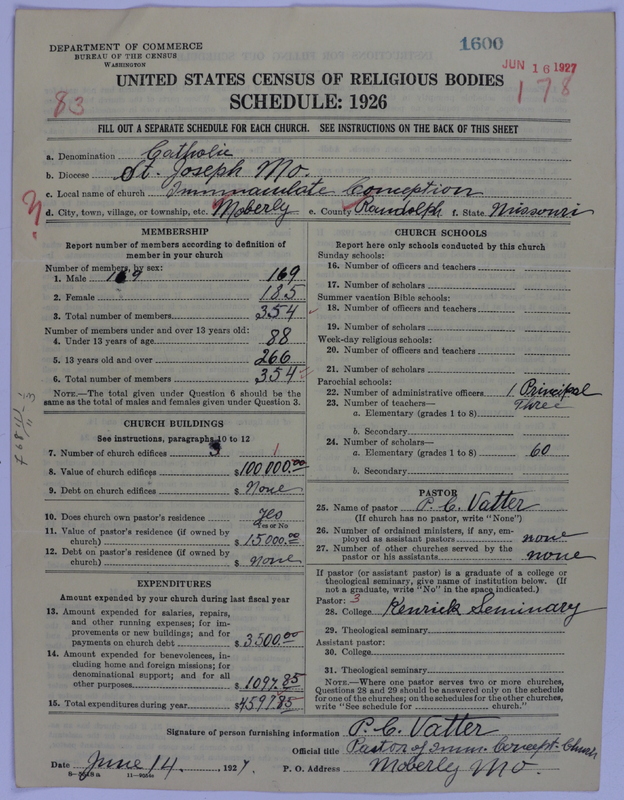 DEPARTMENT OF COMMERCE
BUREAU OF THE CENSUS
WASHINGTON
1600
JUN 16 1927
UNITED STATES CENSUS OF RELIGIOUS BODIES
178
83
SCHEDULE: 1926
FILL OUT A SEPARATE SCHEDULE FOR EACH CHURCH. SEE INSTRUCTIONS ON THE BACK OF THIS SHEET
a. Denomination Catholic
b. Diocese St. Joseph Mo.
c. Local name of church Immaculate Conception
d. City, town, village, or township, etc. Moberly e. County Randolph f. State Missouri
MEMBERSHIP
Report number of members according to definition of member in your church
Number of members, by sex:
1. Male 169 169
2. Female 185
3. Total number of members 354
Number of members under and over 13 years old:
4. Under 13 years of age 88
5. 13 years old and over 266
6. Total number of members 354
NOTE.—The total given under Question 6 should be the
same as the total of males and females given under Question 3.
CHURCH BUILDINGS
See instructions, paragraphs 10 to 12
7. Number of church edifices 1
8. Value of church edifices $100,000.00
9. Debt on church edifices $ None
10. Does church own pastor's residence yes
Yes or No
11. Value of pastor's residence (if owned by
church) $15000.00
12. Debt on pastor's residence (if owned by
church) $ None
EXPENDITURES
Amount expended by your church during last fiscal year
13. Amount expended for salaries, repairs,
and other running expenses; for im-
provements or new buildings; and for
payments on church debt $3500.00
14. Amount expended for benevolences, in-
cluding home and foreign missions; for
denominational support; and for all
other purposes $1097.85
15. Total expenditures during year $4597.85
CHURCH SCHOOLS
Report here only schools conducted by this church
Sunday schools:
16. Number of officers and teachers
17. Number of scholars
Summer vacation Bible schools:
18. Number of officers and teachers
19. Number of scholars
Week-day religious schools:
20. Number of officers and teachers
21. Number of scholars
Parochial schools:
22. Number of administrative officers 1 Principal
23. Number of teachers— Three
a. Elementary (grades 1 to 8)
b. Secondary
24. Number of scholars—
a. Elementary (grades 1 to 8) 60
b. Secondary
PASTOR
25. Name of pastor P. C. Vatter
(If church has no pastor, write "None")
26. Number of ordained ministers, if any, em-
ployed as assistant pastors none
27. Number of other churches served by the
pastor or his assistants none
If pastor (or assistant pastor) is a graduate of a college or
theological seminary, give name of institution below. (If
not a graduate, write "No" in the space indicated.)
Pastor: 3
28. College Kenrick Seminary
29. Theological seminary
Assistant pastor:
30. College
31. Theological seminary
NOTE.—Where one pastor serves two or more churches,
Questions 28 and 29 should be answered only on the schedule
for one of the churches; on the schedules for the other churches,
write "See schedule for church."
Signature of person furnishing information P. C. Vatter
Official title Pastor of Imm. Concept. Church
Date June 14, 1927. P. O. Address Moberly Mo.
11—9254c